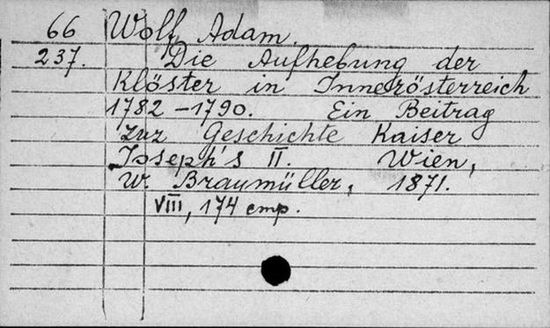 66 Wolf, Adam.
237. Die Aufhebung der
Klöster in Innerösterreich
1782-1790. Ein Beitrag
zur Geschichte Kaiser
Joseph's II. Wien,
W. Braumüller, 1871.
VIII, 174 стр.